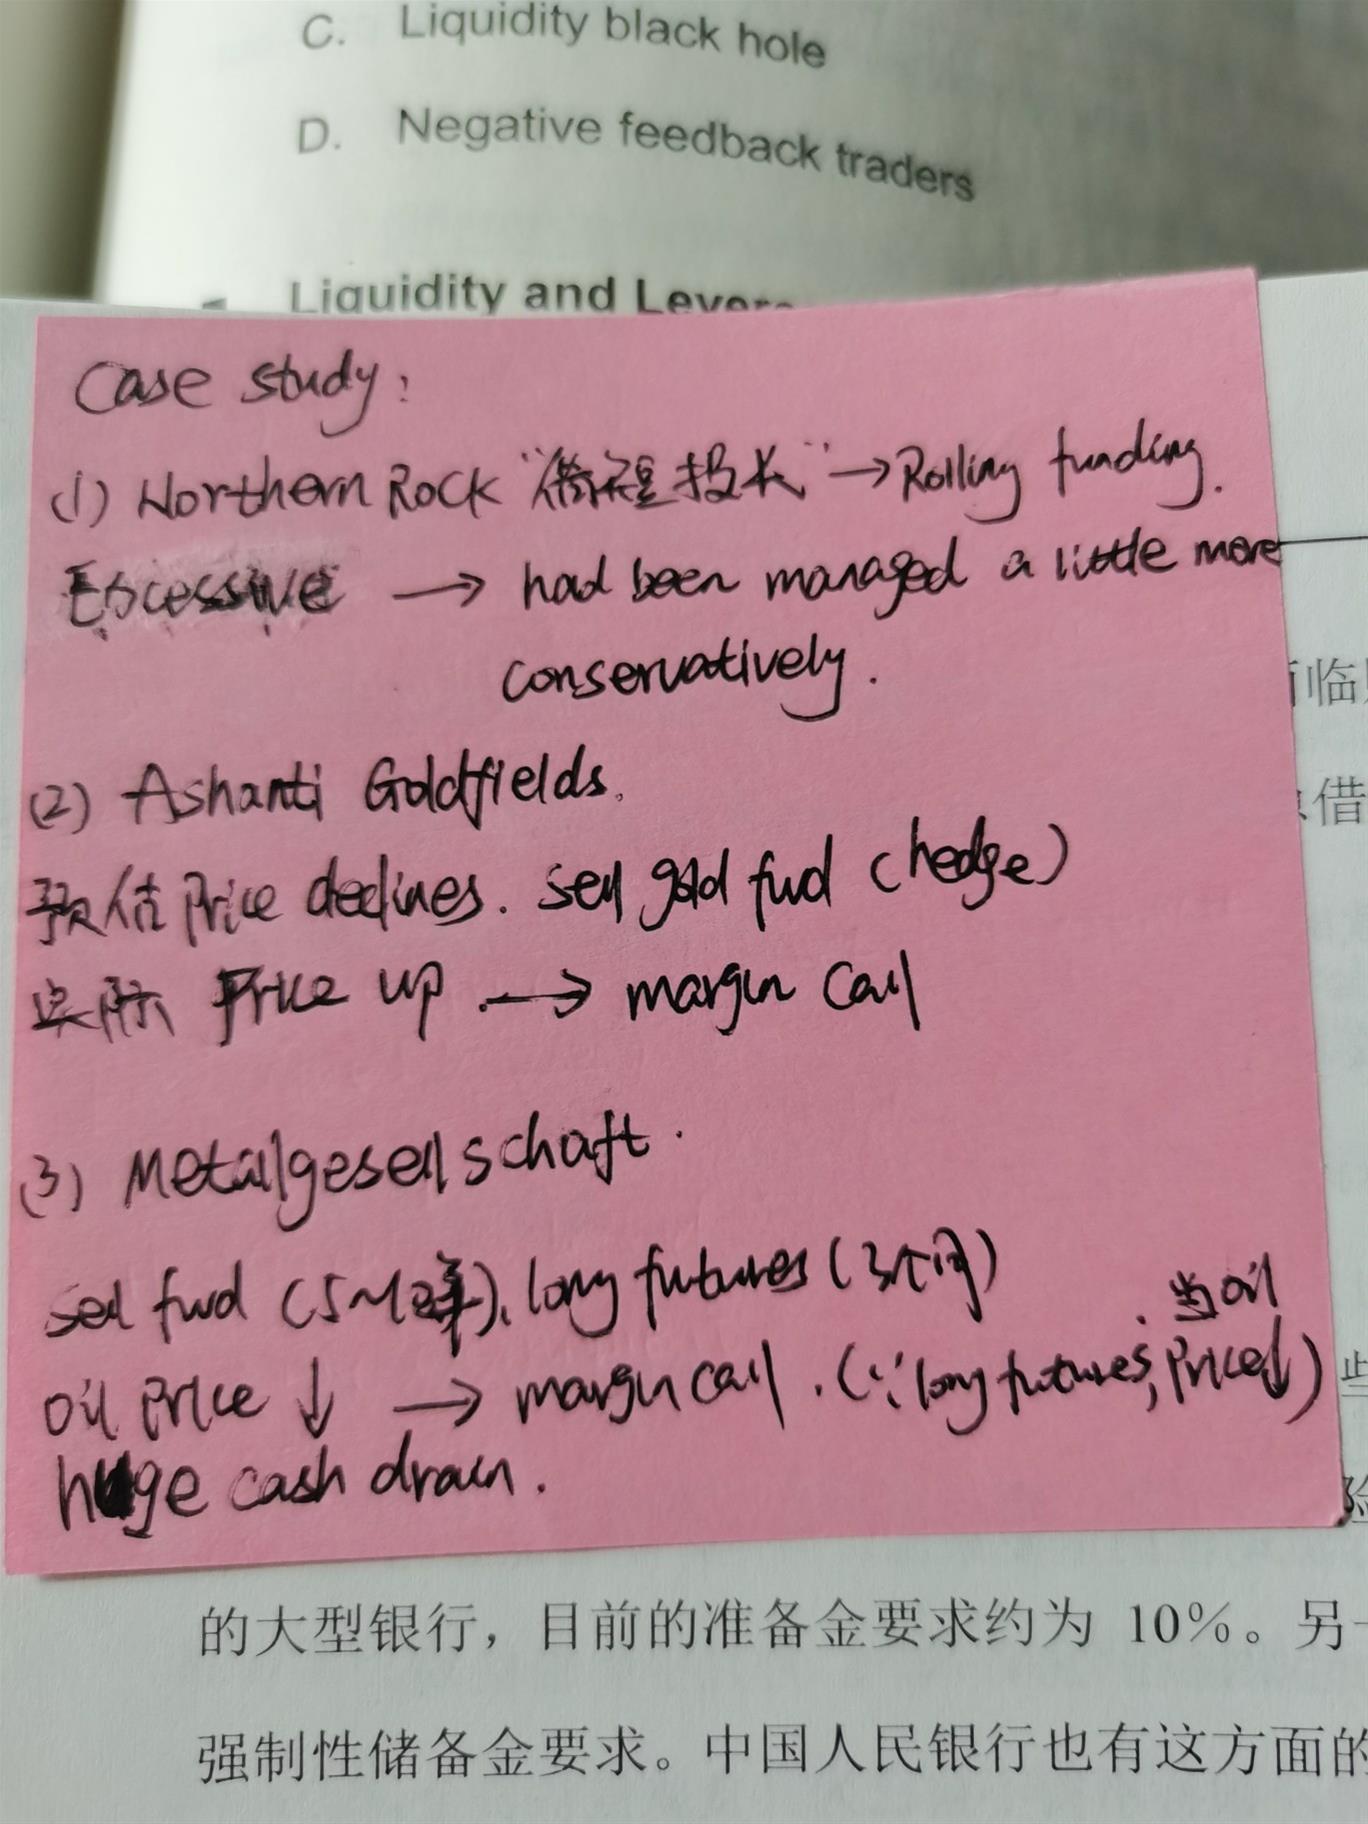 C. Liquidity black hole
D. Negative feedback traders
Liquidity and
Case study:
(1) Northern Rock "借短投长" → Rolling funding.
Excessive → had been managed a little more
conservatively.
(2) Ashanti Goldfields.
预估 Price declines. sell gold fwd (hedge)
实际 Price up. → margin call
(3) Metallgesellschaft.
sell fwd (5~10年), long futures (3个月)
当oil
oil price ↓ → margin call. (∵ long futures, price↓)
huge cash drain.
临
借
些
险
的大型银行，目前的准备金要求约为 10%。另
强制性储备金要求。中国人民银行也有这方面的